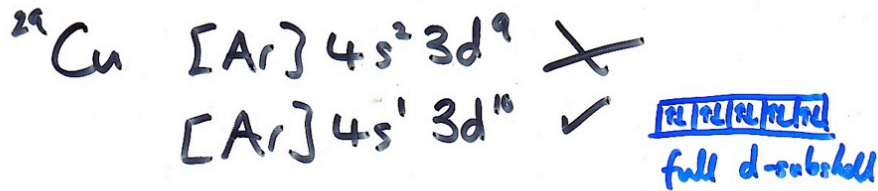 ²⁹Cu [Ar] 4s² 3d⁹ ✗
[Ar] 4s¹ 3d¹⁰ ✓
full d-subshell